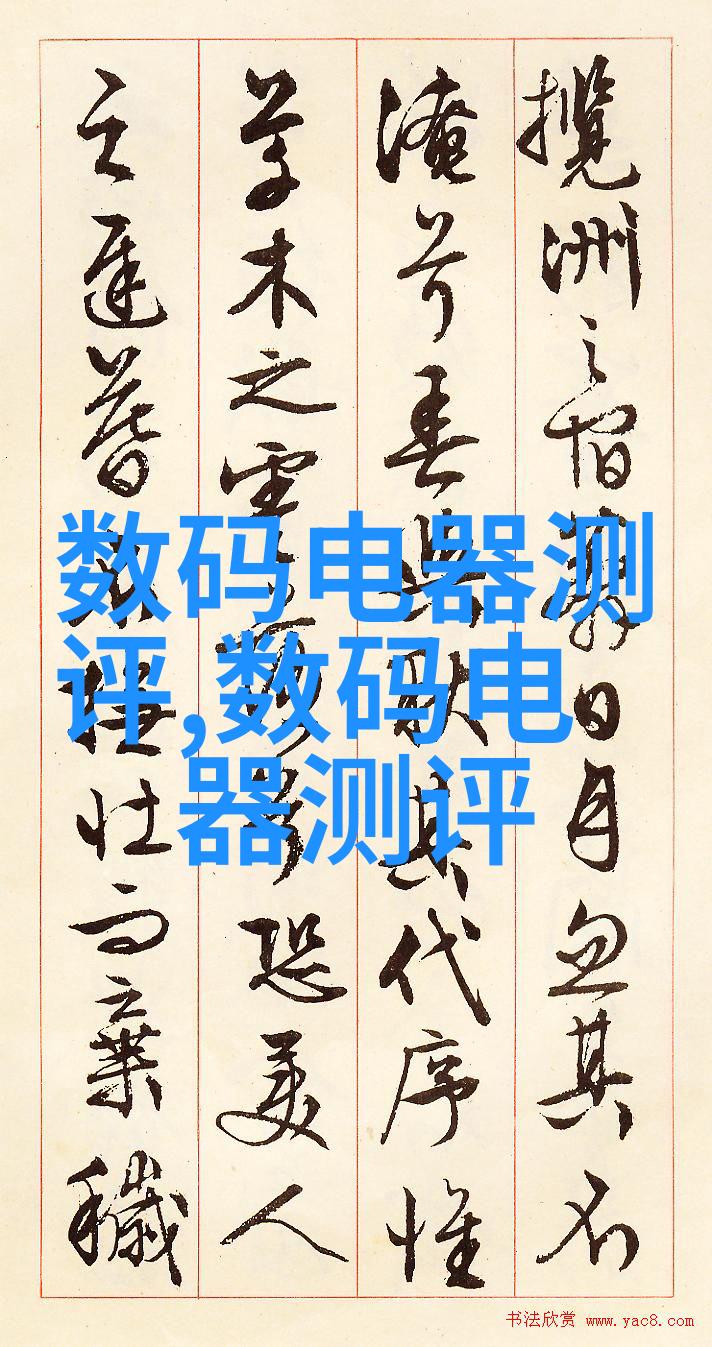 攬洲之宿莽日月忽其不
淹兮春與秋其代序惟
草木之零落兮恐美人
之遲暮不撫壯而棄穢
数码电器测
评,数码电
器测评
书法欣赏 www.yac8.com